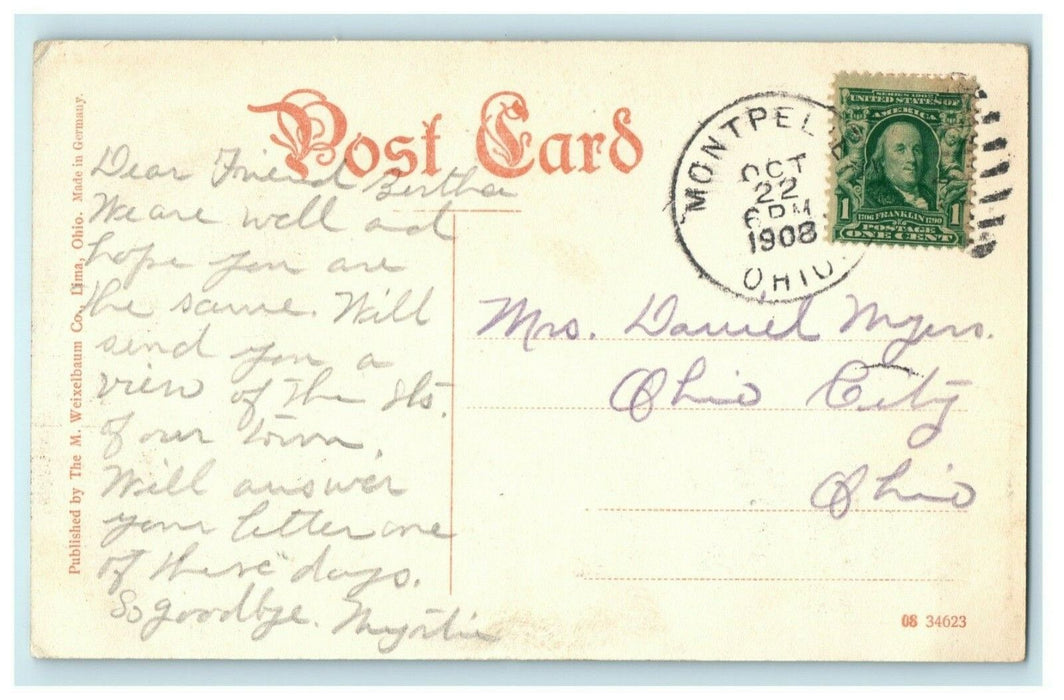 Post Card
Published by The M. Weixelbaum Co., Lima, Ohio. Made in Germany.
Dear Friend Bertha
We are well and
hope you are
the same. Will
send you a
view of the Sts.
of our town
Will answer
your letter one
of these days.
So goodbye. Myrtie
MONTPEL
OCT
22
6 PM
1908
OHIO.
SERIES 1902
UNITED STATES OF
AMERICA
1706 FRANKLIN 1790
1 POSTAGE 1
ONE CENT
Mrs. Daniel Myers.
Ohio City
Ohio
08 34623